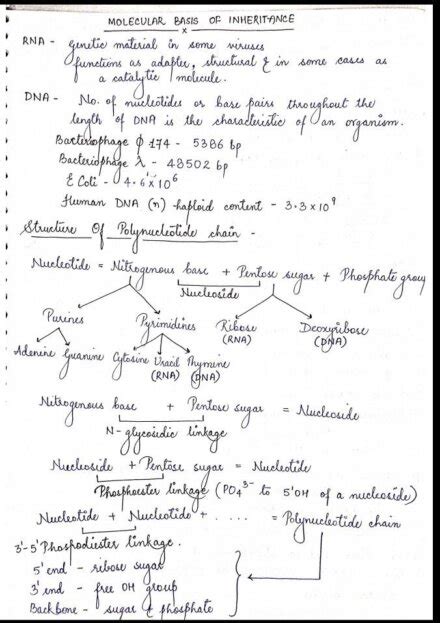 MOLECULAR BASIS OF INHERITANCE
x
RNA - genetic material in some viruses
functions as adapter, structural & in some cases as
a catalytic molecule.
DNA - No. of nucleotides or base pairs throughout the
length of DNA is the characteristic of an organism.
Bacteriophage ϕ 174 - 5386 bp
Bacteriophage λ - 48502 bp
E Coli - 4.6 x 10⁶
Human DNA (n) haploid content - 3.3 x 10⁹
Structure Of Polynucleotide chain -
Nucleotide = Nitrogenous base + Pentose sugar + Phosphate group
Nucleoside
Purines Pyrimidines Ribose (RNA) Deoxyribose (DNA)
Adenine Guanine Cytosine Uracil (RNA) Thymine (DNA)
Nitrogenous base + Pentose sugar = Nucleoside
N-glycosidic linkage
Nucleoside + Pentose sugar = Nucleotide
Phosphoester linkage (PO₄³⁻ to 5'OH of a nucleoside)
Nucleotide + Nucleotide + ..... = Polynucleotide chain
3'-5' Phospodiester linkage.
5' end - ribose sugar
3' end - free OH group
Backbone - sugar + phosphate